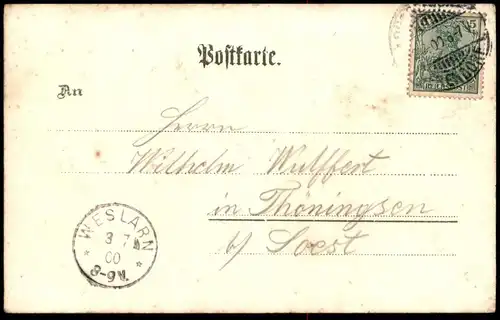 Postkarte.
5
An
Herrn
Wilhelm Wulffert
in Thöningsen
b/ Soest
WESLARN
3 7
00
8-9V.